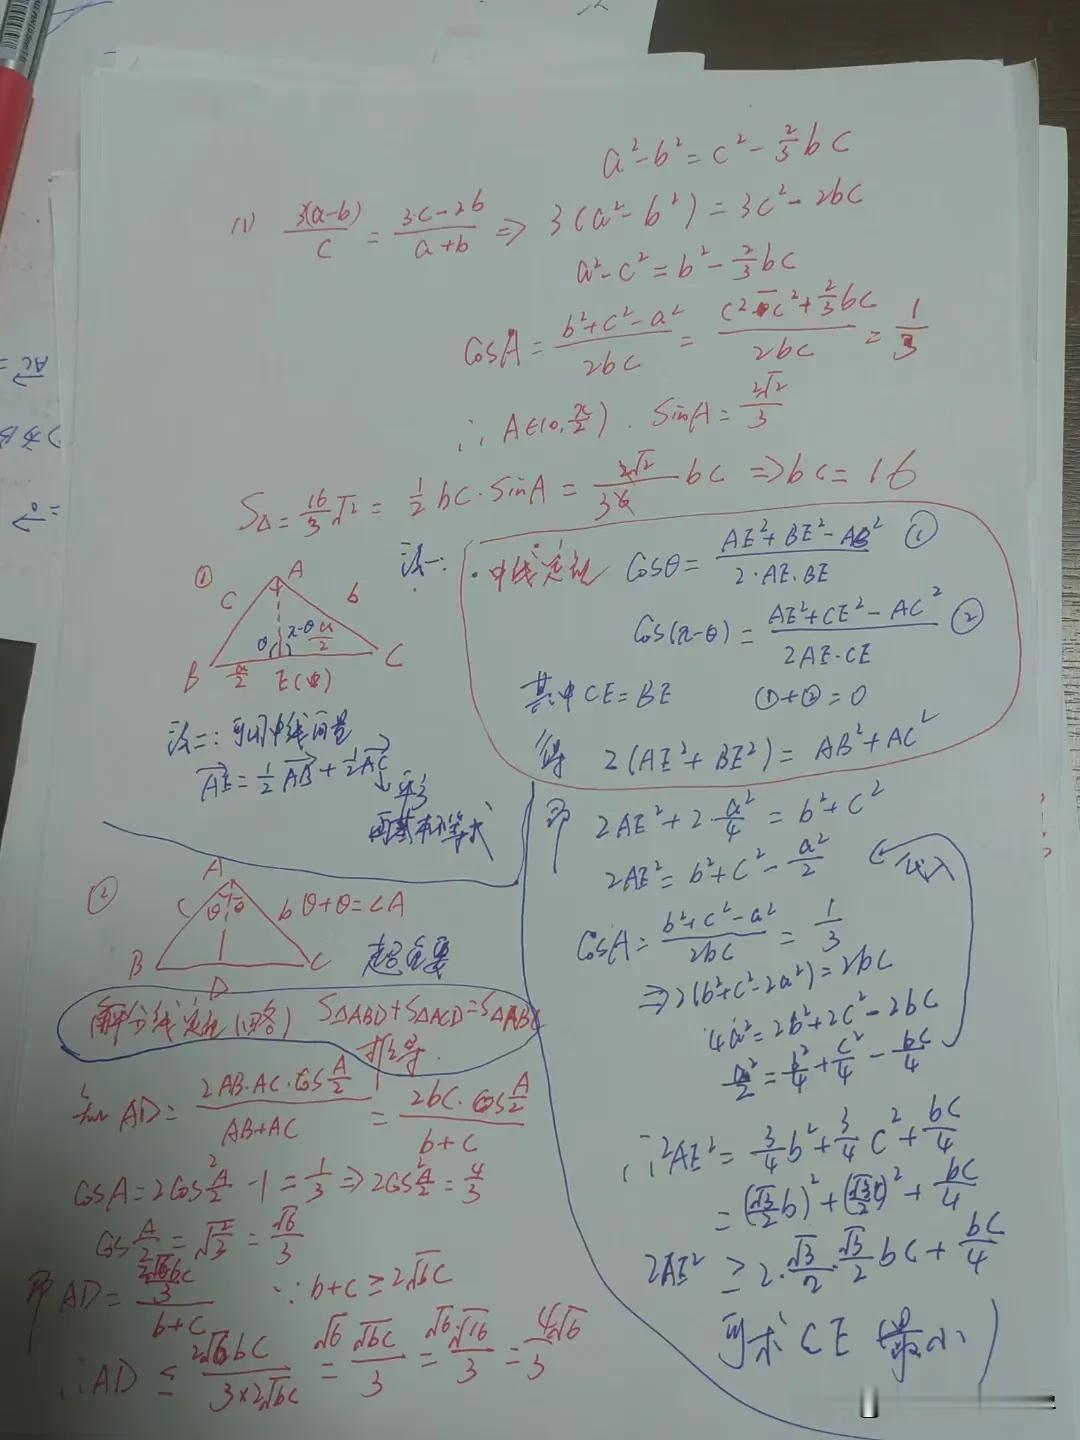 a²-b²=c²-2/3 bc
(1) 3(a-b)/c = 3c-2b/a+b ⇒ 3(a²-b²)=3c²-2bc
a²-c²=b²-2/3 bc
CosA = b²+c²-a²/2bc = c²-c²+2/3 bc/2bc = 1/3
∴ A∈(0,π/2). SinA = 2√2/3
S△ = 16/3 √2 = 1/2 bc·SinA = √2/3 bc ⇒ bc=16
① A
c b
θ π-θ a/2
B a/2 E(中) C
法一:
·中线定理 Cosθ = AE²+BE²-AB²/2·AE·BE ①
Cos(π-θ) = AE²+CE²-AC²/2AE·CE ②
其中CE=BE ①+②=0
得 2(AE²+BE²)=AB²+AC²
法二:可用中线向量
AE=1/2 AB+1/2 AC
平方
再基本不等式
即 2AE²+2·a²/4=b²+c²
2AE²=b²+c²-a²/2 代入
CosA = b²+c²-a²/2bc = 1/3
⇒2(b²+c²-2a²)=2bc
4a²=2b²+2c²-2bc
a²/2=b²/4+c²/4-bc/4
∴2AE²=3/4 b²+3/4 c²+bc/4
=(√3/2 b)²+(√3/2 c)²+bc/4
2AE² ≥2·√3/2·√3/2 bc+bc/4
可求CE(最小)
② A
c θ θ b θ+θ=∠A
B D C
超重要
角分线定理(回答) S△ABD+S△ACD=S△ABC
推导.
知 AD= 2AB·AC·Cos A/2/AB+AC = 2bc·Cos A/2/b+c
CosA=2Cos² A/2 -1=1/3⇒2Cos² A/2=4/3
Cos A/2=√2/3=√6/3
即AD= 2√6bc/3/b+c ∵b+c≥2√bc
∴AD ≤ 2√6bc/3×2√bc = √6 √bc/3 = √6·√16/3 = 4√6/3